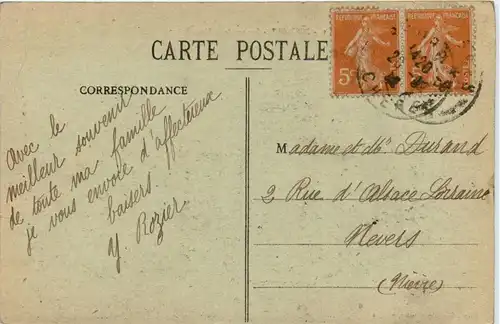 CARTE POSTALE
REPUBLIQUE FRANÇAISE
REPUBLIQUE FRANÇAISE
5c
CORRESPONDANCE
Avec le
meilleur souvenir
de toute ma famille
je vous envoie d'affectueux
baisers
Y. Rozier
Madame et Mr Durand
2 Rue d'Alsace Lorraine
Nevers
(Nièvre)